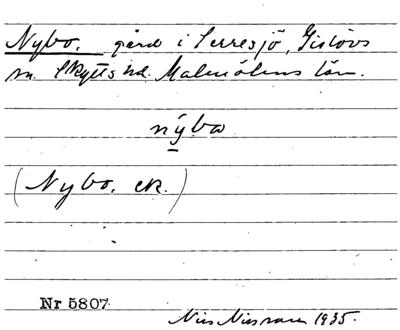 Nybo, gård i Serresjö, Gislövs
sn. Skytts hd. Malmöhus län.
nýbo
(Nybo, ek.)
Nr 5807
Nils Nilsson 1935.